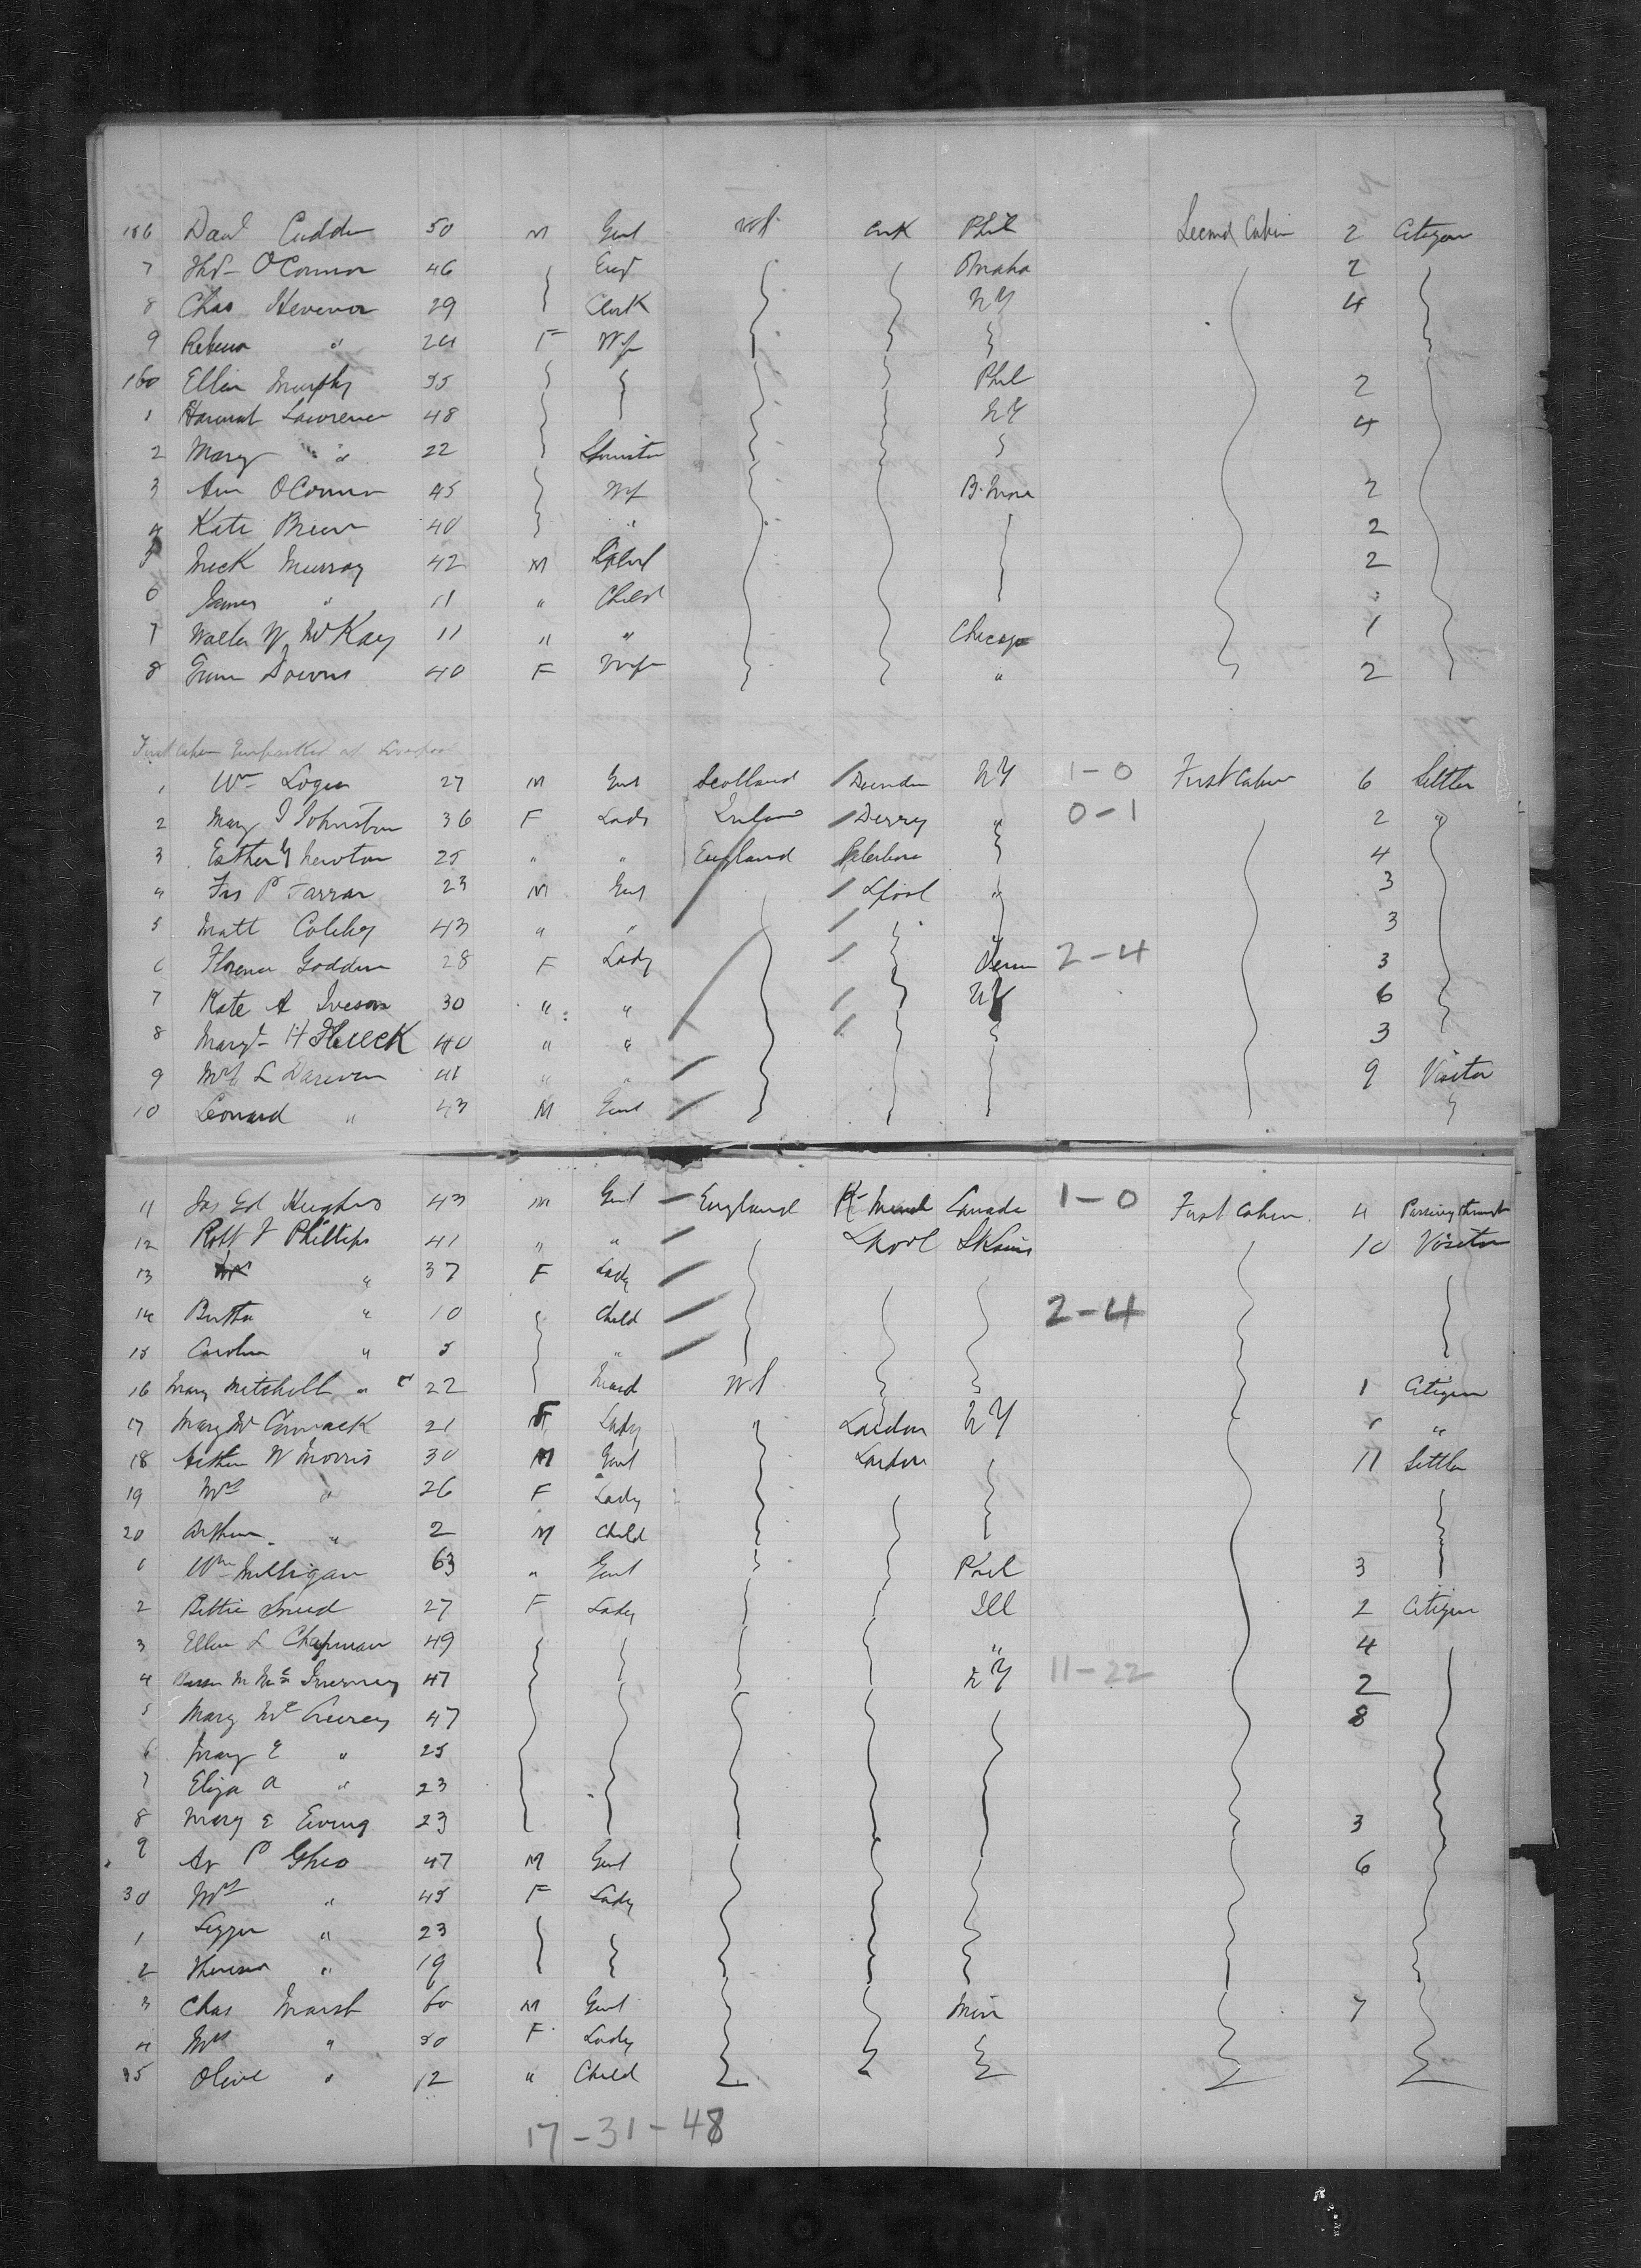 156 Danl Cudden 50 M Gent US Cork Phil Second Cabin 2 Citizen
7 Thos OConnor 46 Omaha 2
8 Chas Hevenor 29 Clerk NY 4
9 Rebecca " 24 F Wife
160 Ellen Murphy 35 Phil 2
1 Hannah Lawrence 48 NY 4
2 Mary " 22 Spinster
3 Ann OConnor 45 Wf B. More 2
4 Kate Brien 40 " 2
5 Mick Murray 42 M 2
6 James " 11 " Child "
7 Walter W McKay 11 " " Chicago 1
8 Downs 40 F Wife " 2
First Cabin Embarked at Liverpool
1 Wm Logan 27 M Gent Scotland Dundee NY 1-0 First Cabin 6 Settler
2 Mary J Johnston 36 F Lady Ireland Derry " 0-1 2 "
3 Esther Y Newton 25 " " England 4
4 Jas P Farrar 23 M Gent Lpool " 3
5 Matt 43 " " 3
6 Florence Godden 28 F Lady 2-4 3
7 Kate A Iveson 30 " " NY 6
8 Margt H Fleeck 40 " " 3
9 Mrs L Darwen 41 " " 9 Visitor
10 Leonard " 43 M Gent
11 Jas Hughes 43 M Gent England Canada 1-0 First Cabin 4 Passing through
12 Robt F Phillips 41 " " Lpool St Louis 10 Visitor
13 " 37 F Lady
14 Bertha " 10 Child 2-4
15 Caroline " 5 "
16 Mary Mitchell " 22 Maid US 1 Citizen
17 Mary McCormack 21 F Lady " London NY 1 "
18 Arthur W Morris 30 M Gent London 11 Settler
19 Mrs " 26 F Lady
20 Arthur " 2 M Child
1 Wm Milligan 63 " Gent Phil 3
2 Bettie Sneed 27 F Lady Ill 2 Citizen
3 Ellen L Chapman 49 " 4
4 47 NY 11-22 2
5 Mary 47 8
6 Mary E " 25
7 Eliza A " 23
8 Mary E Ewing 23 3
9 P Ghio 47 M Gent 6
30 Mrs " 45 F Lady
1 " 23
2 Theresa " 19
3 Chas Marsh 60 M Gent Min 7
4 Mrs " 50 F Lady
35 Olive " 12 " Child
17-31-48